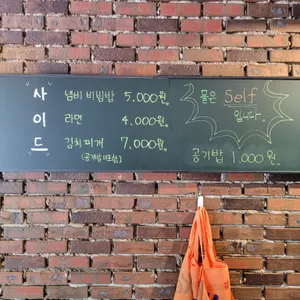 "사이드"
냄비 비빔밥 5.000원.
라면 4.000원.
김치찌개 7.000원.
(공기밥 미포함)
물은 Self 입니다.
공기밥 1.000원.